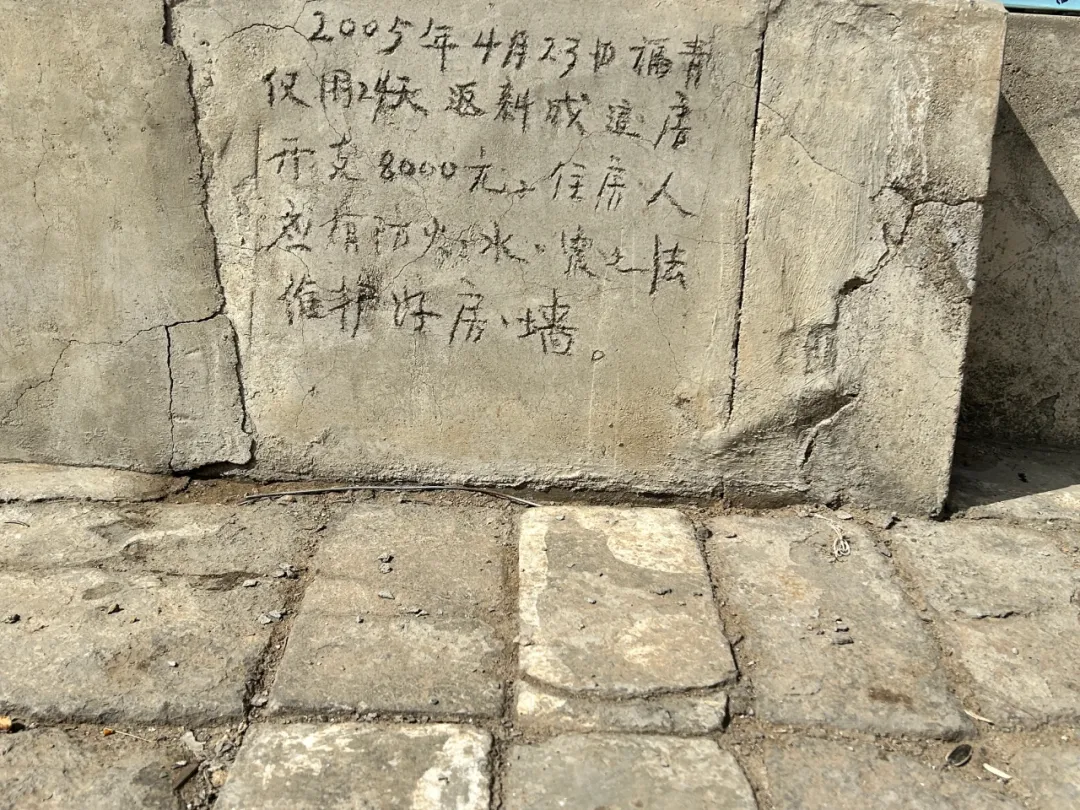 2005年4月23日福青
仅用24天返新成这房
开支8000元。住房人
应有防火、水、震之法
维护好房、墙。